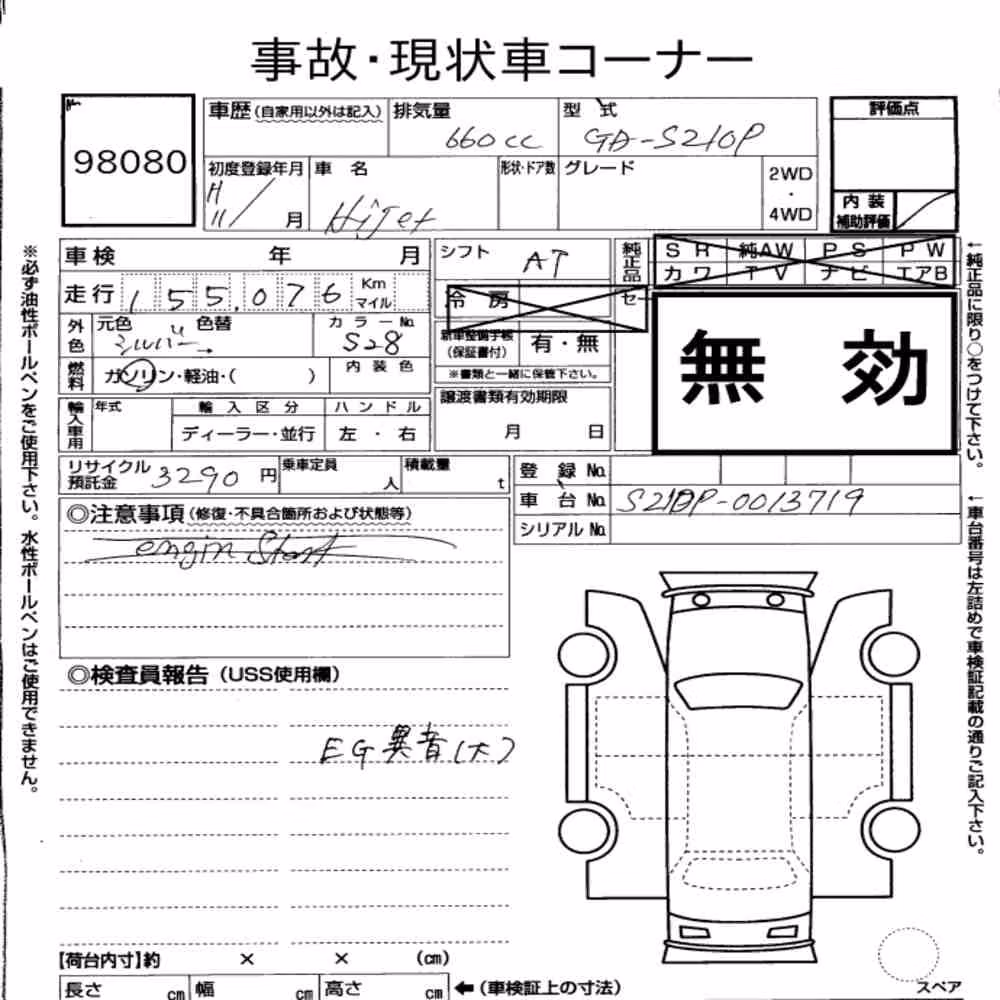 事故・現状車コーナー
98080
車歴(自家用以外は記入)
排気量
660cc
型 式
GD-S210P
評価点
初度登録年月
H
11/ 月
車 名
HiJet
形状・ドア数
グレード
2WD
・
4WD
内 装
補助評価
車検 年 月
シフト AT
純正品
SR 純AW PS PW
カワ TV ナビ エアB
走行 155,076 Km
マイル
冷 房
セー
無 効
外色
元色 色替
シルバー
カラーNo.
S28
新車整備手帳
(保証書付)
有・無
※書類と一緒に保管下さい。
燃料
ガソリン・軽油・( )
内 装 色
譲渡書類有効期限
月 日
輸入車用
年式
輸 入 区 分
ハ ン ド ル
ディーラー・並行
左 ・ 右
リサイクル
預託金
3290 円
乗車定員
人
積載量
t
登 録 No.
車 台 No. S210P-0013719
シリアル No.
◎注意事項(修復・不具合箇所および状態等)
engin Start
◎検査員報告(USS使用欄)
EG異音(大)
【荷台内寸】約 × × (cm)
長さ cm
幅 cm
高さ cm
←(車検証上の寸法)
スペア
※必ず油性ボールペンをご使用下さい。水性ボールペンはご使用できません。
←純正品に限り○をつけて下さい。
←車台番号は左詰めで車検証記載の通りご記入下さい。